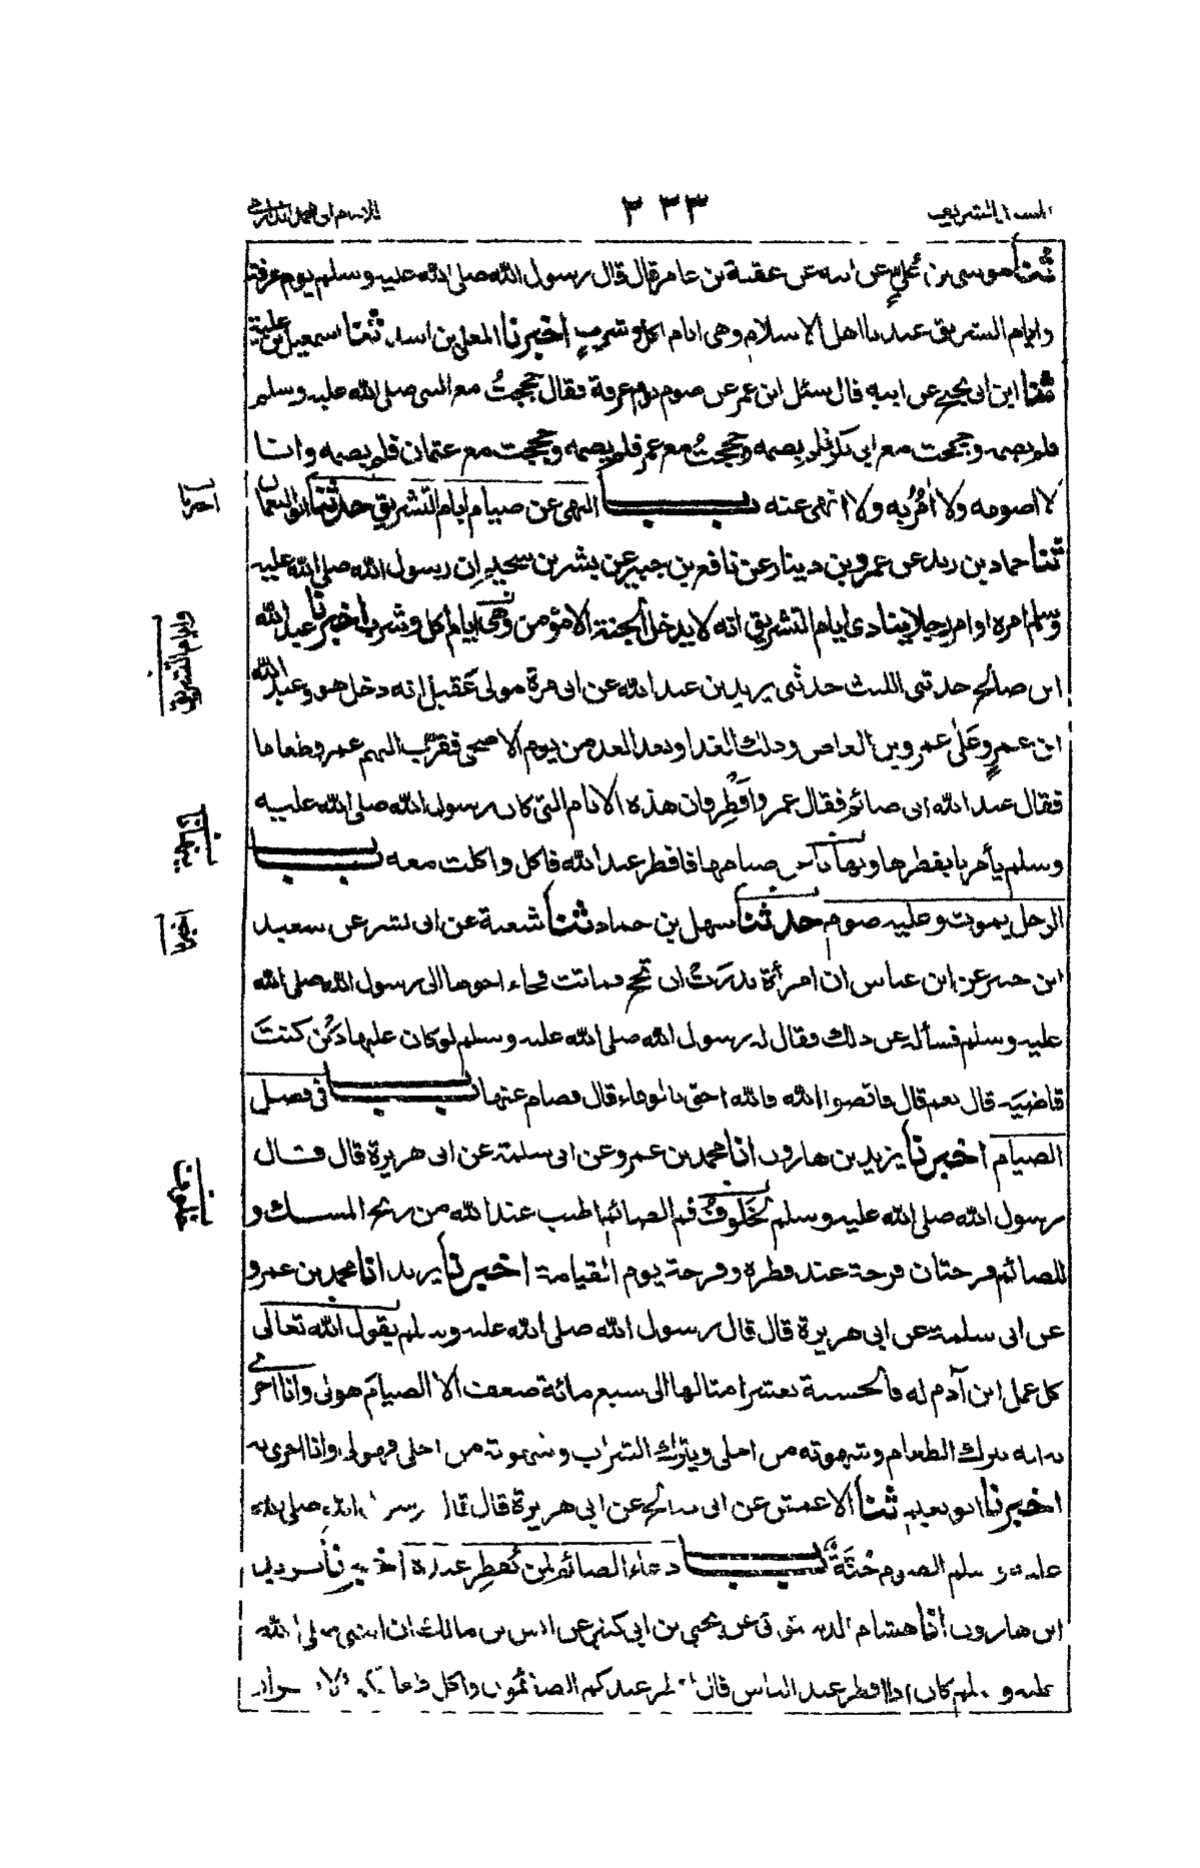 المسند الشريف ٢٣٣ للامام ابى محمد الدارمى
ثنا موسى بن عُلَىٍّ عن ابيه عن عقبة بن عامر قال قال رسول الله صلى الله عليه وسلم يوم عرفة
وايام التشريق عيدنا اهل الاسلام وهى ايام اكل وشربٍ اخبرنا المعلى بن اسد ثنا اسمعيل بن علية
ثنا ابن ابى نجيح عن ابيه قال سئل ابن عمر عن صوم يوم عرفة فقال حججتُ مع النبى صلى الله عليه وسلم
فلم يصمه وحججت مع ابى بكر فلم يصمه وحججتُ مع عمر فلم يصمه وحججت مع عثمان فلم يصمه وانا
لا اصومه ولا اٰمُرُ به ولا انهى عنه باب النهى عن صيام ايام التشريق حدثنا ابو النعمان
ثنا حماد بن زيد عن عمرو بن دينار عن نافع بن جبير عن بشر بن سحيم ان رسول الله صلى الله عليه
وسلم امره او امر رجلا ينادى ايام التشريق انه لا يدخل الجنة الا مؤمن وهى ايام اكل وشرب اخبرنا عبد الله
ابن صالح حدثنى الليث حدثنى يزيد بن عبد الله عن ابى مرة مولى عقيل انه دخل هو وعبد الله
ابن عمرٍو على عمرو بن العاص وذلك الغد او بعد الغد من يوم الاضحى فقرّب اليهم عمرو طعاما
فقال عبد الله انى صائم فقال عمرو افْطِر فان هذه الايام التى كان رسول الله صلى الله عليه
وسلم يأمرنا بفطرها وينهانا عن صيامها فافطر عبد الله فاكل واكلت معه باب
الرجل يموت وعليه صوم حدثنا سهل بن حماد ثنا شعبة عن ابى بشر عن سعيد
ابن جبير عن ابن عباس ان امرأة نذرَتْ ان تحج فماتت فجاء اخوها الى رسول الله صلى الله
عليه وسلم فسأله عن ذلك فقال له رسول الله صلى الله عليه وسلم لو كان عليها دَيْن كنتَ
قاضيَه قال نعم قال فاقضوا الله فالله احق بالوفاء قال فصام عنها باب فى فضل
الصيام اخبرنا يزيد بن هارون انا محمد بن عمرو عن ابى سلمة عن ابى هريرة قال قال
رسول الله صلى الله عليه وسلم لخَلُوفُ فم الصائم اطيب عند الله من ريح المسك و
للصائم فرحتان فرحة عند فطره وفرحة يوم القيامة اخبرنا يزيد انا محمد بن عمرو
عن ابى سلمة عن ابى هريرة قال قال رسول الله صلى الله عليه وسلم يقول الله تعالى
كل عمل ابن آدم له فالحسنة بعشر امثالها الى سبع مائة ضعف الا الصيام هو لى وانا اجزى
به انه يترك الطعام وشهوته من اجلى ويترك الشراب وشهوته من اجلى فهو لى وانا اجزى به
اخبرنا ابو نعيم ثنا الاعمش عن ابى صالح عن ابى هريرة قال قال رسول الله صلى الله
عليه وسلم الصوم جُنَّةٌ باب دعاء الصائم لمن يُفطِر عنده اخبرنا يزيد
ابن هارون انا هشام الدستوائى عن يحيى بن ابى كثير عن انس بن مالك ان النبى صلى الله
عليه وسلم كان اذا افطر عند الناس قال افطر عندكم الصائمون واكل طعامكم الابرار
اخبرنا
وايام التشريق
ينهانا
اخبرنا